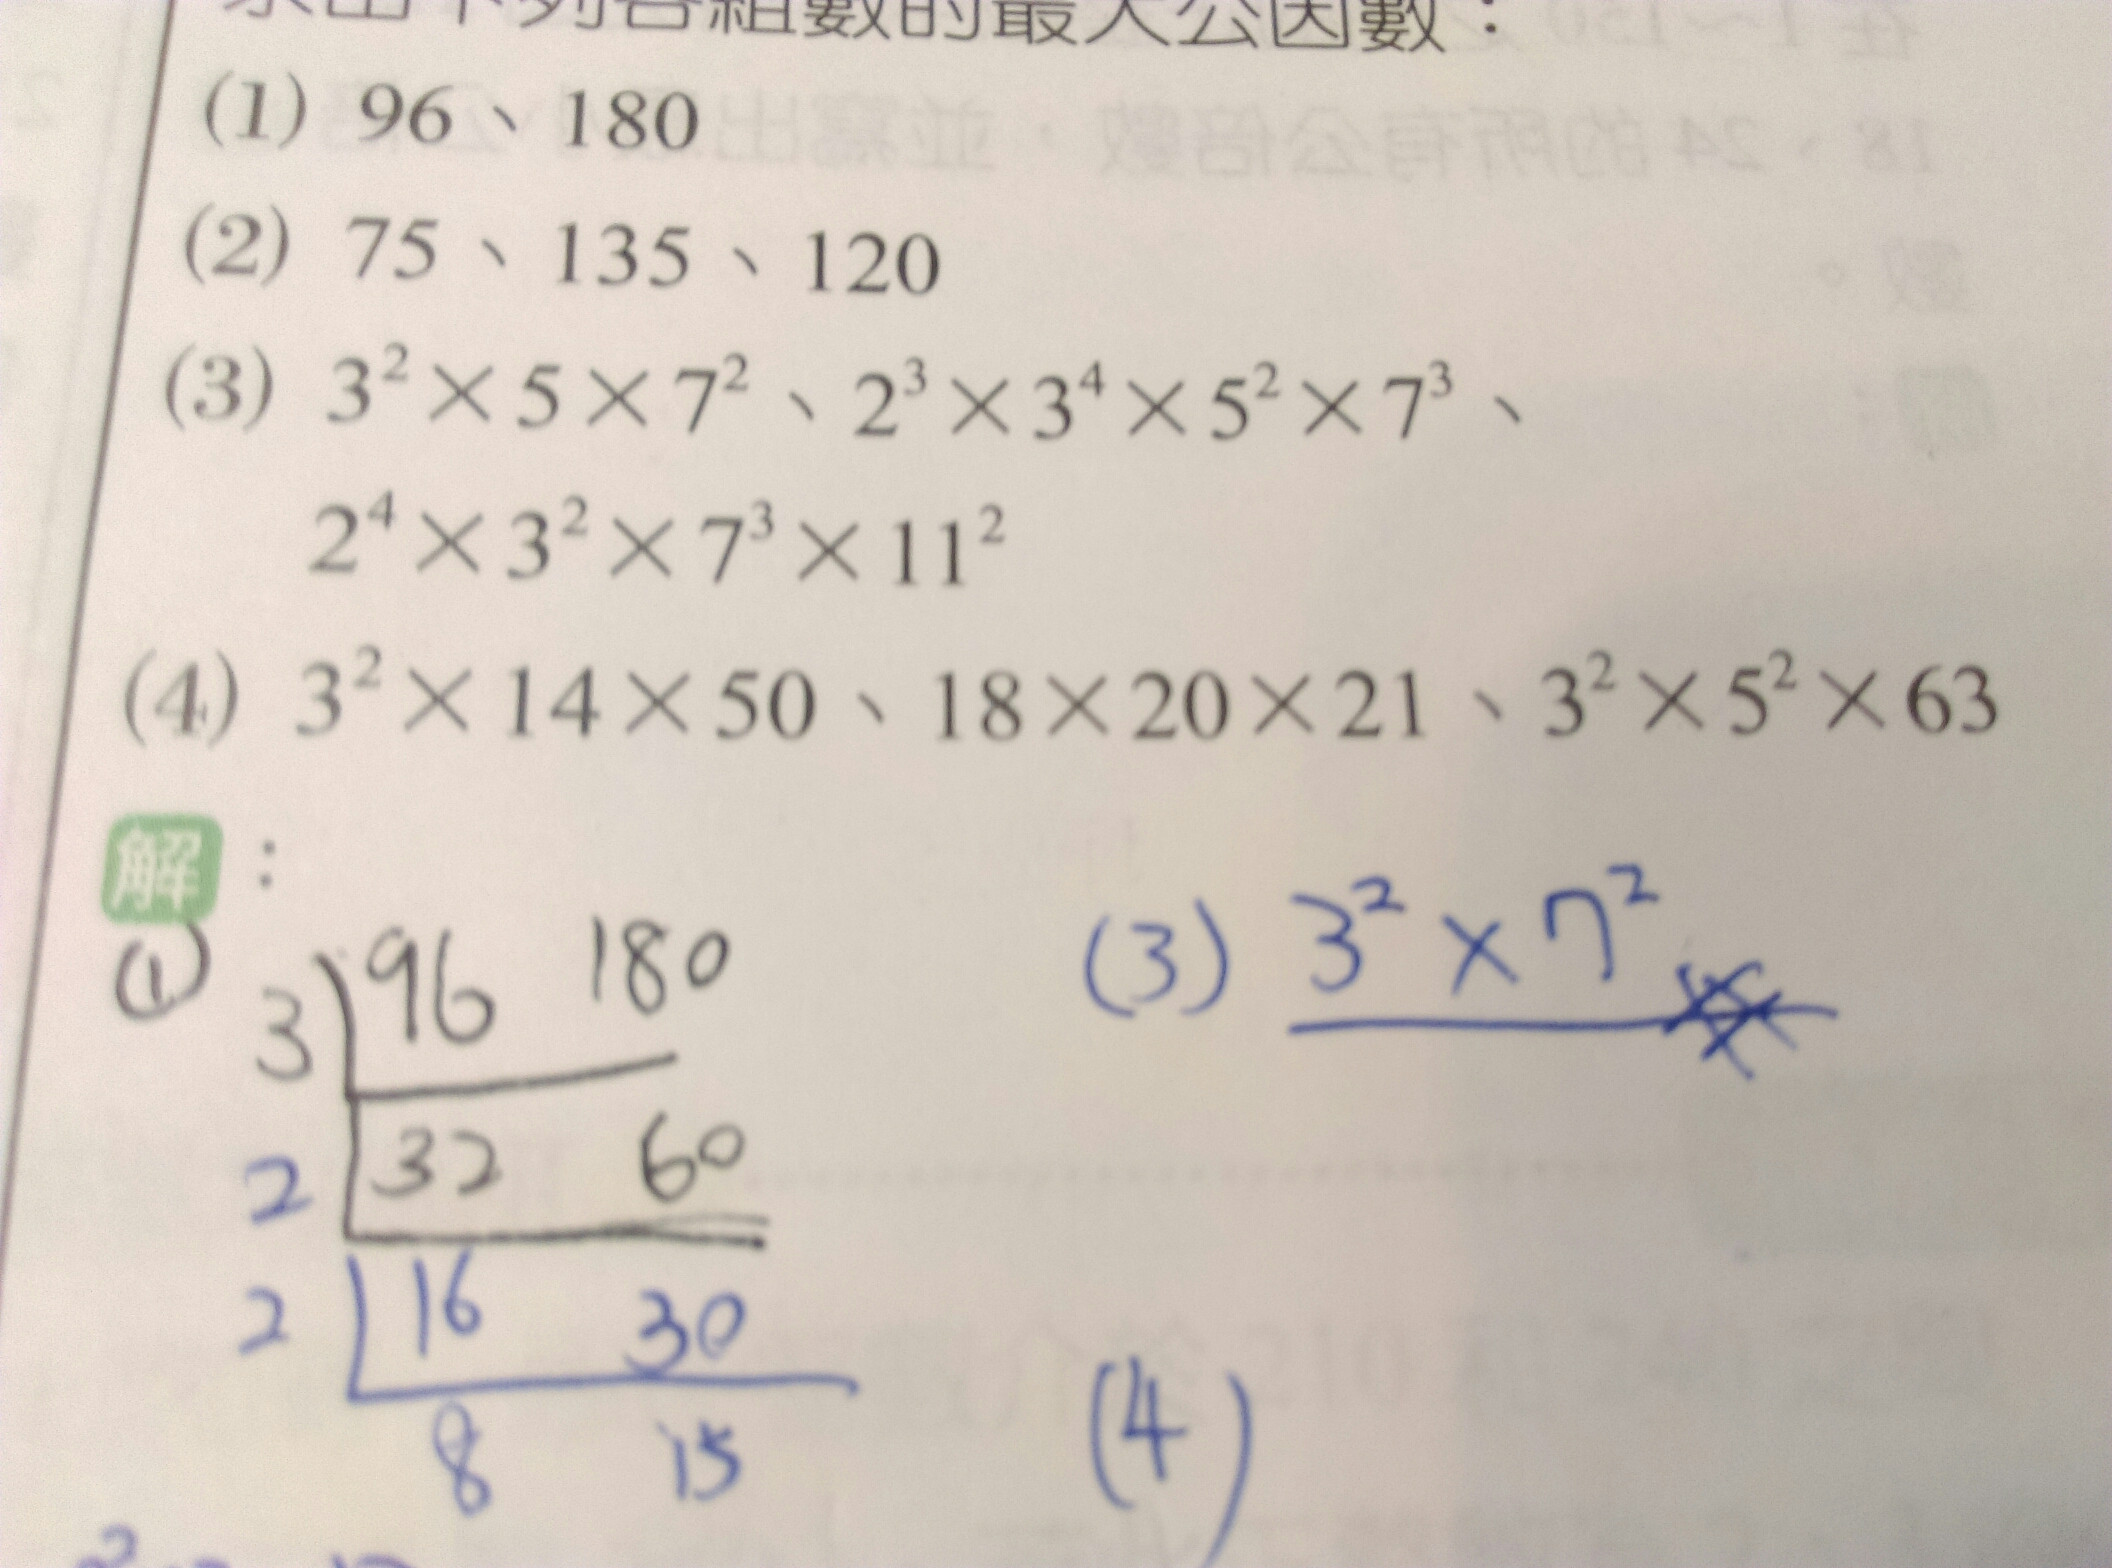 求出下列各組數的最大公因數：
(1) 96、180
(2) 75、135、120
(3) 3²×5×7²、2³×3⁴×5²×7³、
2⁴×3²×7³×11²
(4) 3²×14×50、18×20×21、3²×5²×63
解：
① 3 96 180
2 32 60
2 16 30
8 15
(3) 3²×7²
(4)